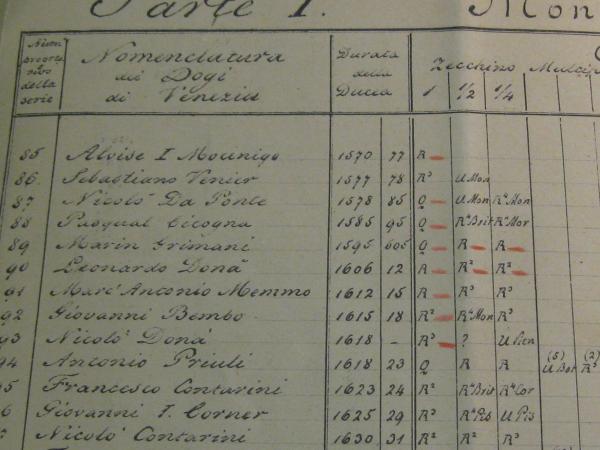 Parte I. Mon
Num. progressivo della serie Nomenclatura dei Dogi di Venezia Durata della Ducea Zecchino Multipli
1 1/2 1/4
85 Aloise I Mocenigo 1570 77 R
86 Sebastiano Venier 1577 78 R³ U Mon
87 Nicolò Da Ponte 1578 85 Q U Mon R⁴ Mon
88 Pasqual Cicogna 1585 95 Q R⁴ Brit R⁴ Mor
89 Marin Grimani 1595 605 Q R R
90 Leonardo Donà 1606 12 R R² R²
91 Marc' Antonio Memmo 1612 15 R R³ R³
92 Giovanni Bembo 1615 18 R² R⁴ Mon R³
93 Nicolò Donà 1618 – R³ ? U Pien
94 Antonio Priuli 1618 23 Q R R (5) U Bot (2) R³
95 Francesco Contarini 1623 24 R² R⁴ Brit R⁴ Cor
6 Giovanni I. Corner 1625 29 R³ R⁴ Pis U Pis
7 Nicolò Contarini 1630 31 R² R² R³